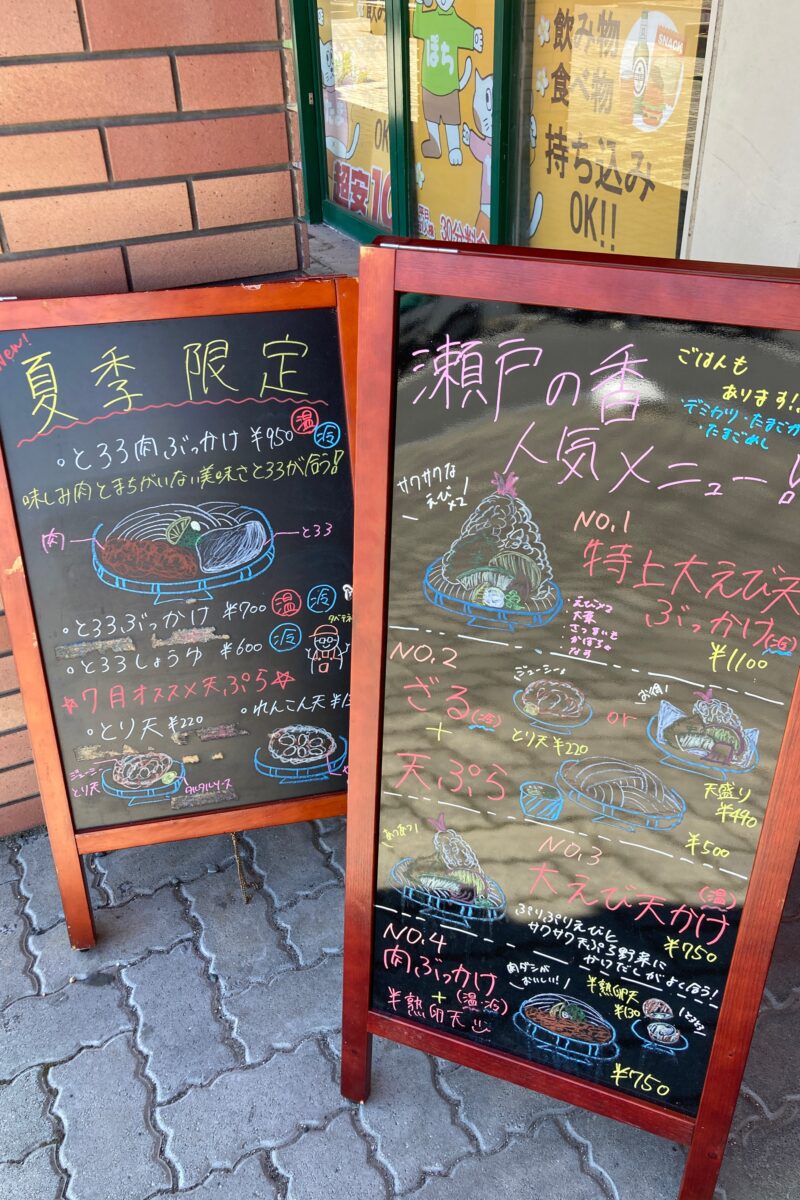 ぽち
OK
超安
30分料金
飲み物
食べ物
SNACK
持ち込み
OK!!
New!
夏季限定
・とろろ肉ぶっかけ ¥950 温 冷
味しみ肉とまちがいない美味さとろろが合う!
肉
とろろ
・とろろぶっかけ ¥700 温 冷
・とろろしょうゆ ¥600 冷
☆7月オススメ天ぷら☆
・とり天 ¥220
・れんこん天
ジューシー
とり天
タルタルソース
瀬戸の香
人気メニュー!
ごはんも
あります!!
・デミカツ・たまごか
・たまごめし
サクサクな
えび
NO.1
特上大えび天
ぶっかけ(冷)
¥1100
大葉
さつまいも
かぼちゃ
なす
NO.2
ざる(冷)
+
天ぷら
ジューシー!
とり天 ¥220
or
お得!
天盛り
¥490
¥500
あつあつ!
NO.3
大えび天かけ
(温)
¥750
ぷりぷりえびと
サクサク天ぷら野菜に
かけだしがよく合う!
NO.4
肉ぶっかけ
+(温・冷)
半熟卵天
肉ダシが
おいしい!
半熟卵天
¥130
¥750